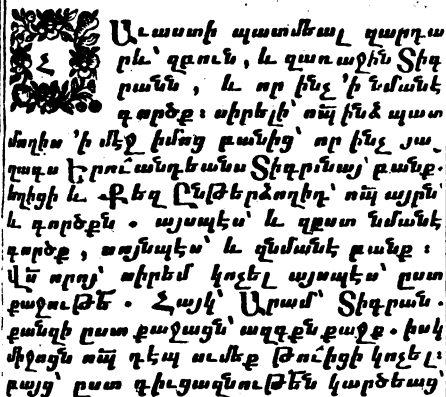 Հ
Աւաստի պատմեալ զարդա
րև՝ զբուն, և զառաջին Տիգ
րանն , և որ ինչ ՚ի նմանէ
գործք : սիրելի՝ ոպ̃ ինձ պատ
մողիս ՚ի մէջ իմոց բանից՝ որ ինչ յա
ղագս Էրուանդեանս Տիգրանայ՝ բանք.
եղիցի և Քեզ Ընթերձողիդ՝ ոպ̃ այրն
և գործքն . այսպէս՝ և զըստ նմանէ
գործք , սոյնպէս՝ և զնմանէ բանք :
Վս̃ որոյ՝ սիրեմ կոչել այսպէս՝ ըստ
քաջութե̃ . Հայկ՝ Արամ՝ Տիգրան .
քանզի ըստ քաջացն՝ ազգքն քաջք. իսկ
միջոցն ոպ̃ դէպ ումեք թուիցի կոչել:
բայց՝ ըստ դիւցազնութե̃ն կարծեաց՝